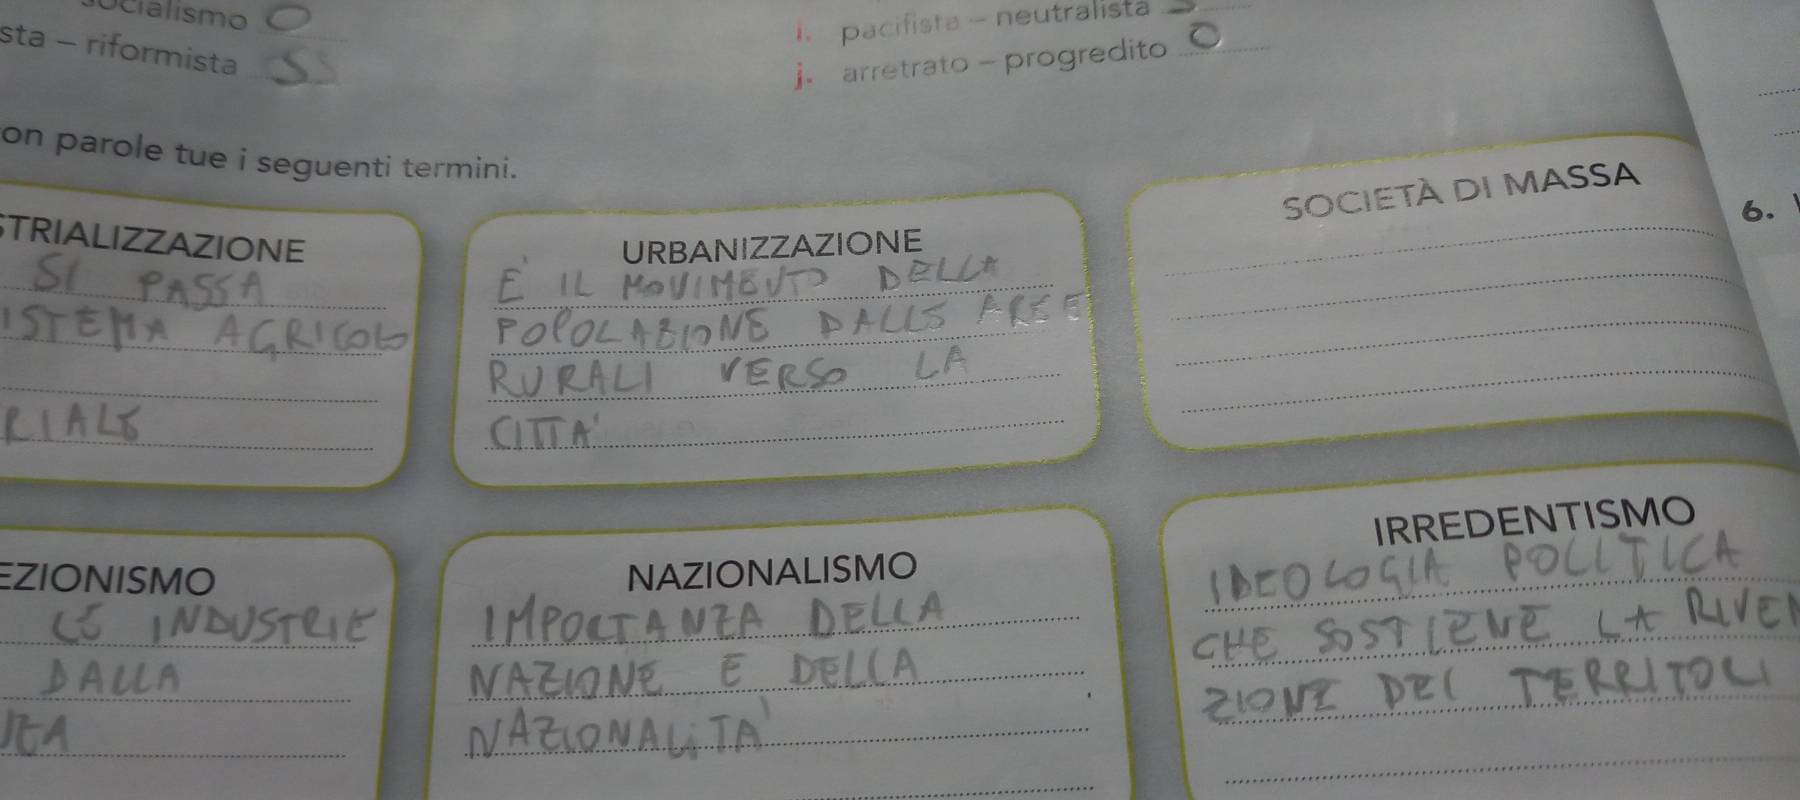 socialismo O
sta – riformista SS
i. pacifista – neutralista S
j. arretrato – progredito O
on parole tue i seguenti termini.
STRIALIZZAZIONE
SI PASSA
ISTEMA AGRICOLO
RIALE
URBANIZZAZIONE
E' IL MOVIMENTO DELLA
POPOLAZIONE DALLE AREE
RURALI VERSO LA
CITTA'
SOCIETÀ DI MASSA
6.
EZIONISMO
LE INDUSTRIE
DALLA
NAZIONALISMO
IMPORTANZA DELLA
NAZIONE E DELLA
NAZIONALITA'
IRREDENTISMO
IDEOLOGIA POLITICA
CHE SOSTIENE LA RIVEN
ZIONE DEI TERRITORI